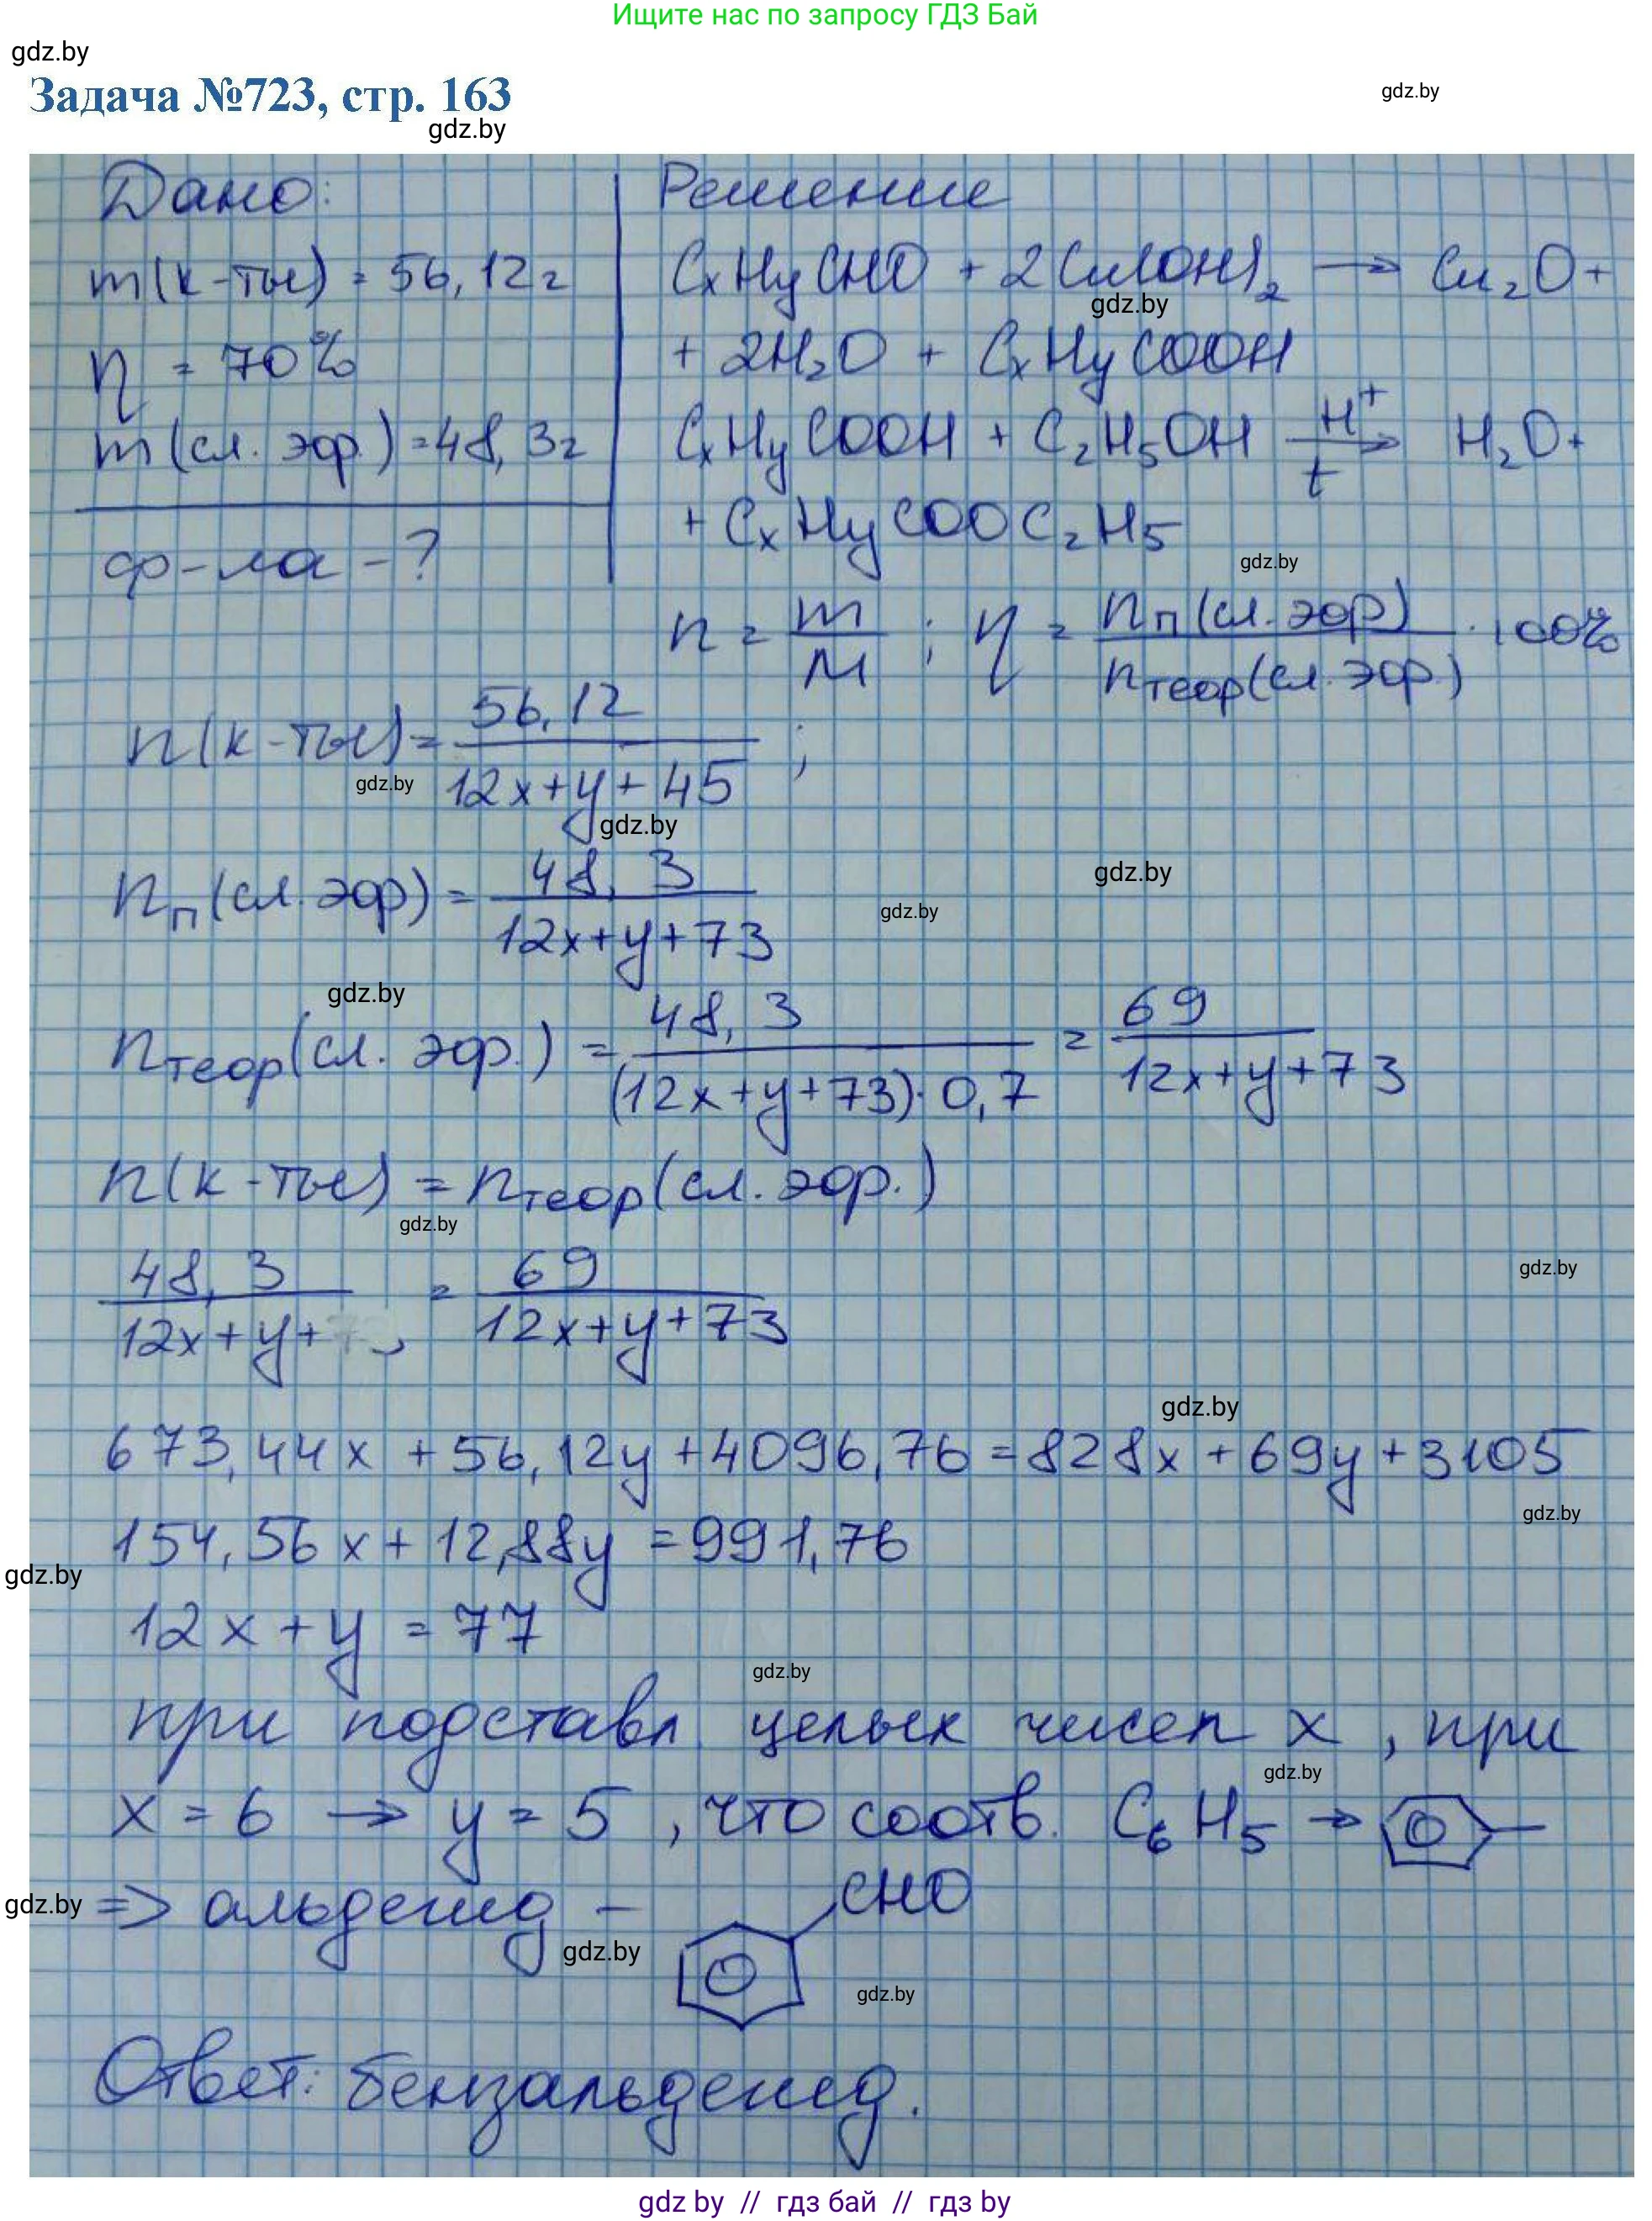 Ищите нас по запросу ГДЗ Бай
gdz.by
Задача №723, стр. 163
gdz.by
gdz.by
Дано:
m(к-ты) = 56,12г
η = 70%
m(сл. эфр.) = 48,3г
ф-ла - ?
Решение
CxHyCHO + 2Cu(OH)₂ → Cu₂O +
gdz.by
+ 2H₂O + CxHyCOOH
CxHyCOOH + C₂H₅OH H⁺ → t H₂O +
+ CxHyCOOC₂H₅
gdz.by
n = m/M ; η = nп(сл. эфр)/nтеор(сл. эфр.) · 100%
n(к-ты) = 56,12/12x+y+45 ;
gdz.by
gdz.by
nп(сл. эфр) = 48,3/12x+y+73
gdz.by
gdz.by
gdz.by
nтеор(сл. эфр.) = 48,3/(12x+y+73)·0,7 = 69/12x+y+73
n(к-ты) = nтеор(сл. эфр.)
gdz.by
48,3/12x+y+ = 69/12x+y+73
gdz.by
gdz.by
673,44x + 56,12y + 4096,76 = 828x + 69y + 3105
gdz.by
154,56x + 12,88y = 991,76
gdz.by
12x + y = 77
gdz.by
при подставл. целых чисел x, при
gdz.by
x = 6 → y = 5, что соотв. C₆H₅ →
gdz.by
⇒ альдегид – CHO
gdz.by
gdz.by
Ответ: бензальдегид.
gdz by // гдз бай // гдз by